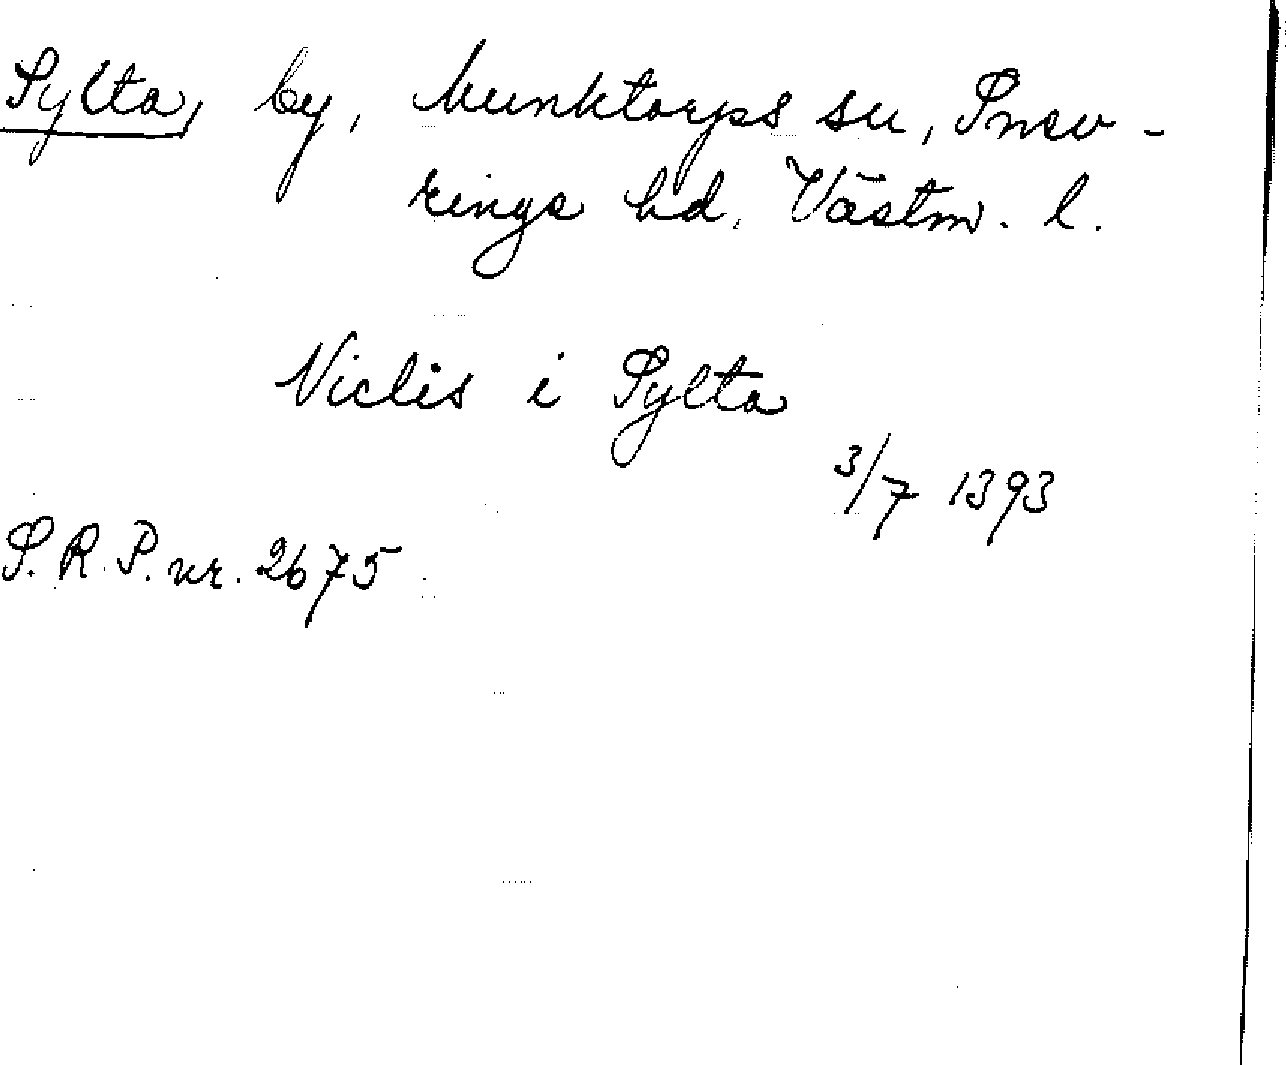 Sylta, by, Munktorps sn, Snev-
rings hd. Västm. l.
Niclis i Sylta
3/7 1393
S.R.P. nr. 2675